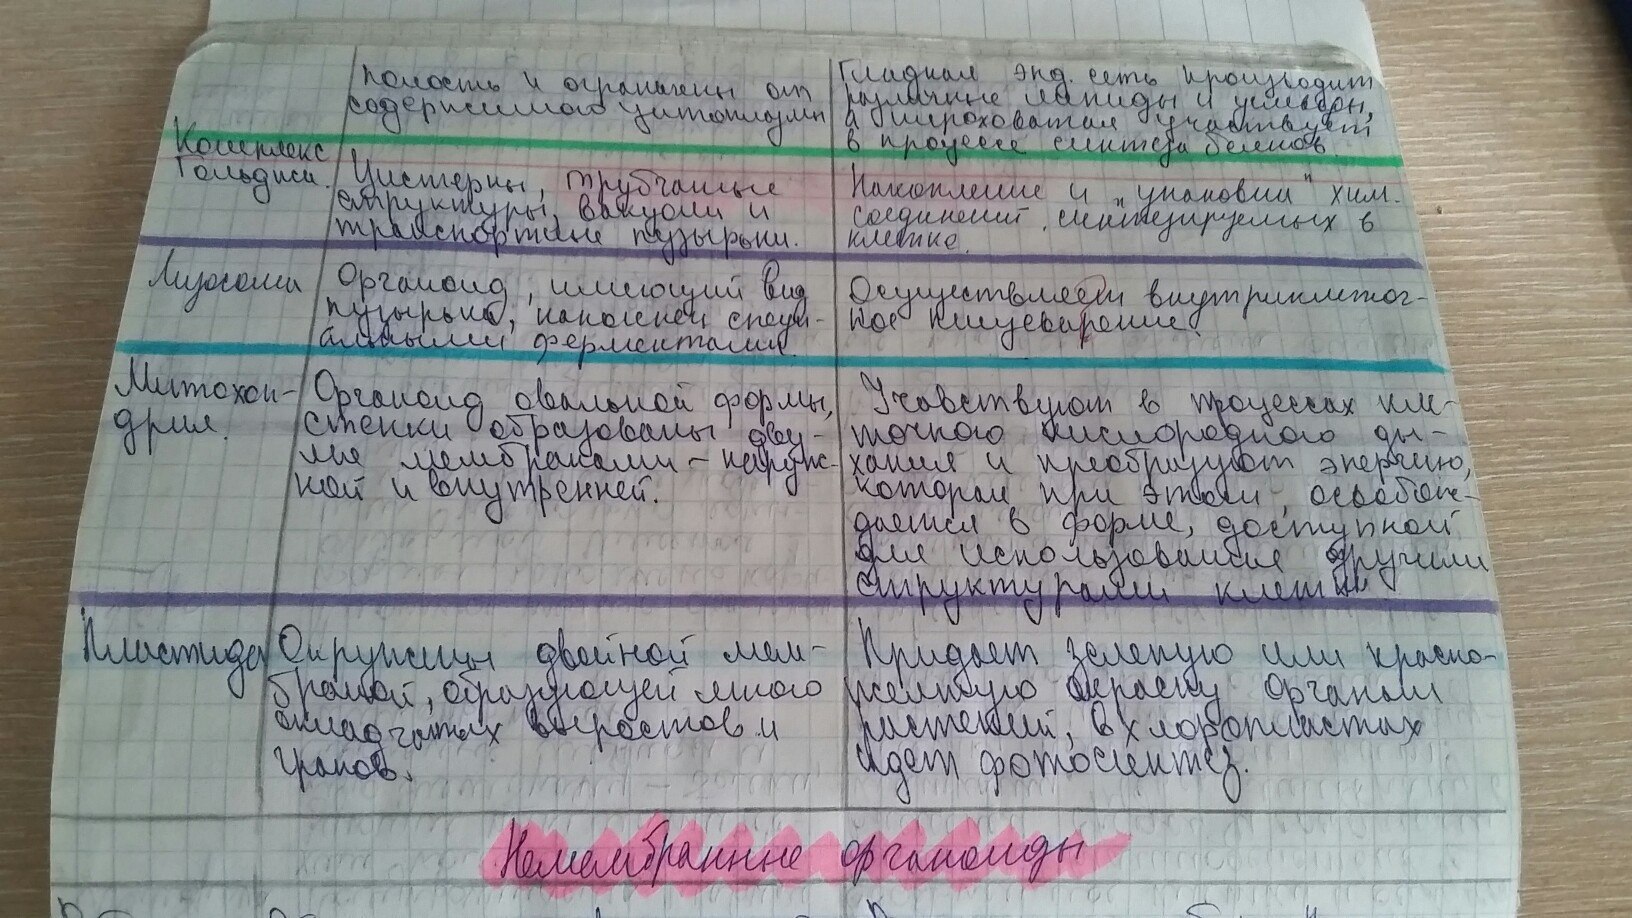 полость и ограничены от
содержимого цитоплазмы
Гладкая энд. сеть производит
различные липиды и углевод,
а шероховатая участвует
в процессе синтеза белков.
Комплекс
Гольджи.
Цистерны, трубчатые
структуры, вакуоли и
транспортные пузырьки.
Накопление и "упаковка" хим.
соединений, синтезируемых в
клетке.
Лизосома
Органоид, имеющий вид
пузырька,
ферментами.
Осуществляет внутриклеточ-
ное пищеварение.
Митохон-
дрия.
Органоид овальной формы,
стенки образованы дву-
мя мембранами - наруж-
ной и внутренней.
Учавствуют в процессах кле-
точного кислородного ды-
хания и преобразуют энергию,
которая при этом освобож-
дается в форме, доступной
для использования другими
структурами клетки
Пластиды
Окружены двойной мем-
браной, образующей много
складчатых выростов и
гранов.
Придает зеленую или красно-
желтую окраску органам
растений, в хлоропластах
идет фотосинтез.
Немембранные органоиды